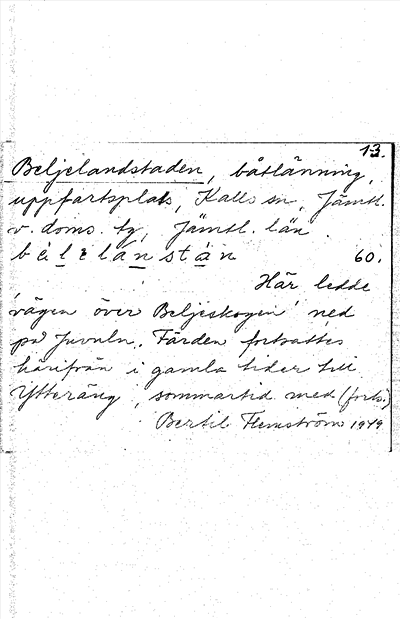 13.
Beljelandstaden, båtlänning,
uppfartsplats, Kalls sn, Jämtl.
v. doms. tg, Jämtl. län
60.
Här ledde
vägen över Beljeskogen ned
på Juveln. Färden fortsattes
härifrån i gamla tider till
Ytteräng, sommartid med (forts.)
Bertil Flemström 1949